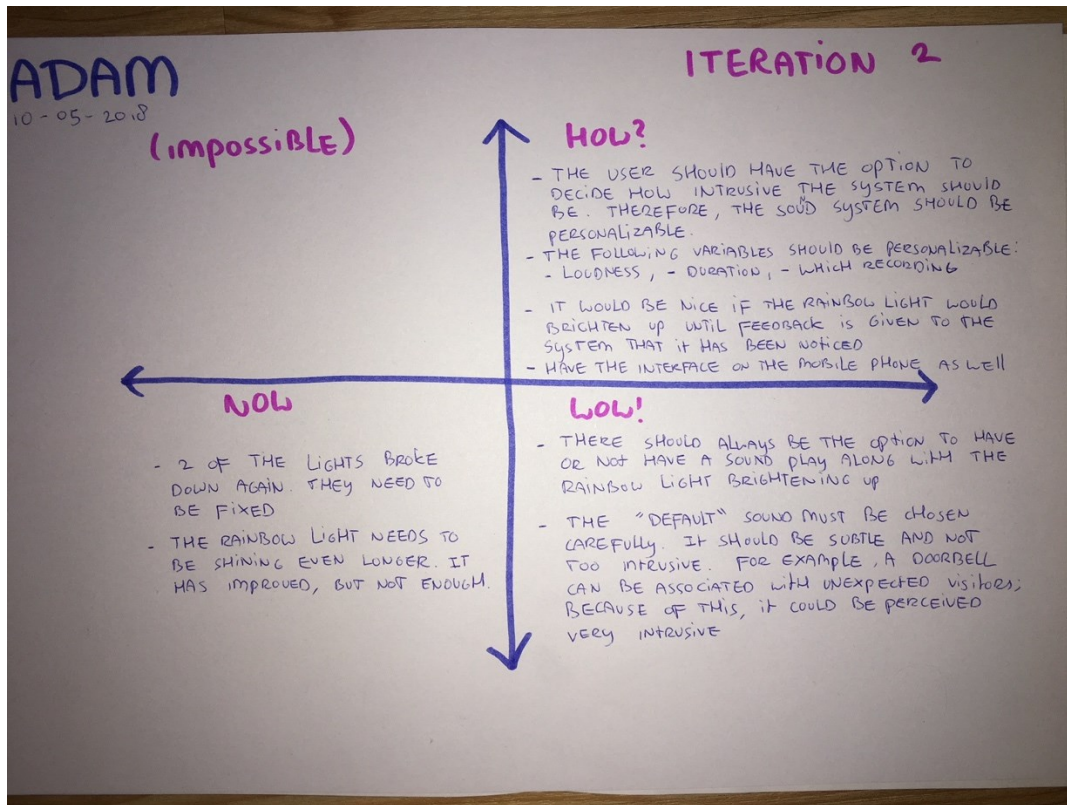 ADAM
10-05-2018
ITERATION 2
(impossiBLE)
HOW?
- THE USER SHOULD HAVE THE OPTION TO
DECIDE HOW INTRUSIVE THE SYSTEM SHOULD
BE. THEREFORE, THE SOUND SYSTEM SHOULD BE
PERSONALIZABLE.
- THE FOLLOWING VARIABLES SHOULD BE PERSONALIZABLE:
- LOUDNESS, - DURATION, - WHICH RECORDING
- IT WOULD BE NICE IF THE RAINBOW LIGHT WOULD
BRIGHTEN UP UNTIL FEEDBACK IS GIVEN TO THE
SYSTEM THAT IT HAS BEEN NOTICED
- HAVE THE INTERFACE ON THE MOBILE PHONE AS WELL
NOW
- 2 OF THE LIGHTS BROKE
DOWN AGAIN. THEY NEED TO
BE FIXED
- THE RAINBOW LIGHT NEEDS TO
BE SHINING EVEN LONGER. IT
HAS IMPROVED, BUT NOT ENOUGH.
WOW!
- THERE SHOULD ALWAYS BE THE OPTION TO HAVE
OR NOT HAVE A SOUND PLAY ALONG WITH THE
RAINBOW LIGHT BRIGHTENING UP
- THE "DEFAULT" SOUND MUST BE CHOSEN
CAREFULLY. IT SHOULD BE SUBTLE AND NOT
TOO INTRUSIVE. FOR EXAMPLE, A DOORBELL
CAN BE ASSOCIATED WITH UNEXPECTED VISITORS;
BECAUSE OF THIS, IT COULD BE PERCEIVED
VERY INTRUSIVE